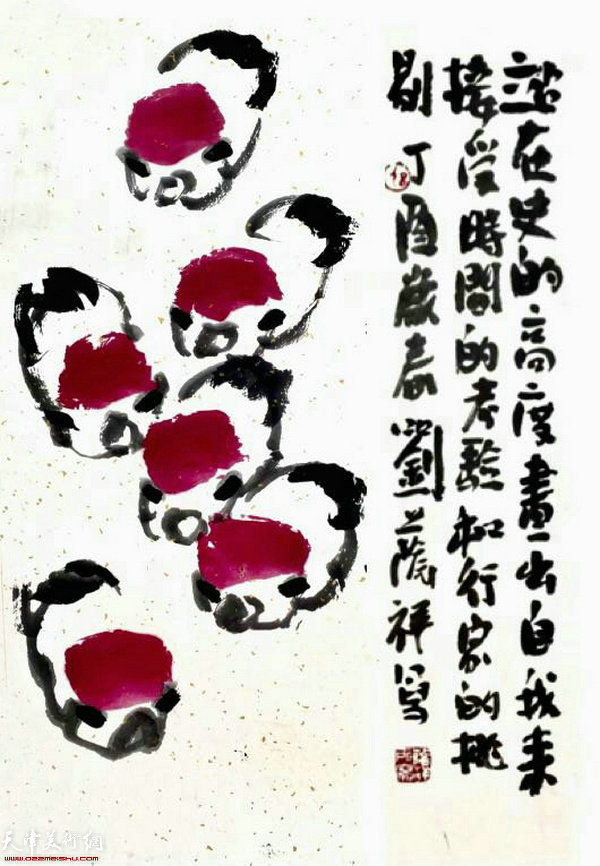 站在史的高度畫出自我来
接受時間的考驗和行家的挑
剔丁酉歲春劉蔭祥写
天津美术网
www.022meishu.com